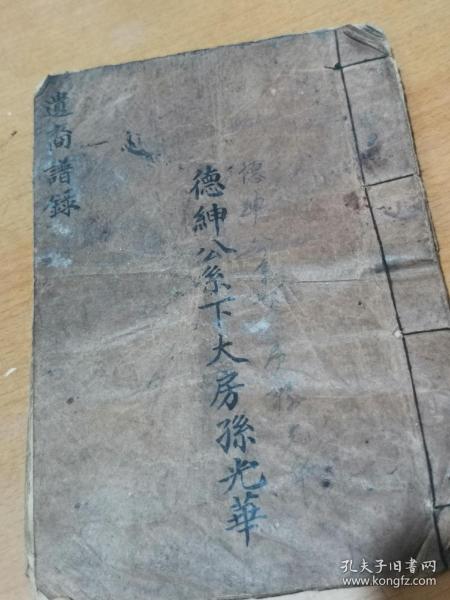 德紳
德紳公系下大房孫光華
遺尚譜録
孔夫子旧书网
www.kongfz.com